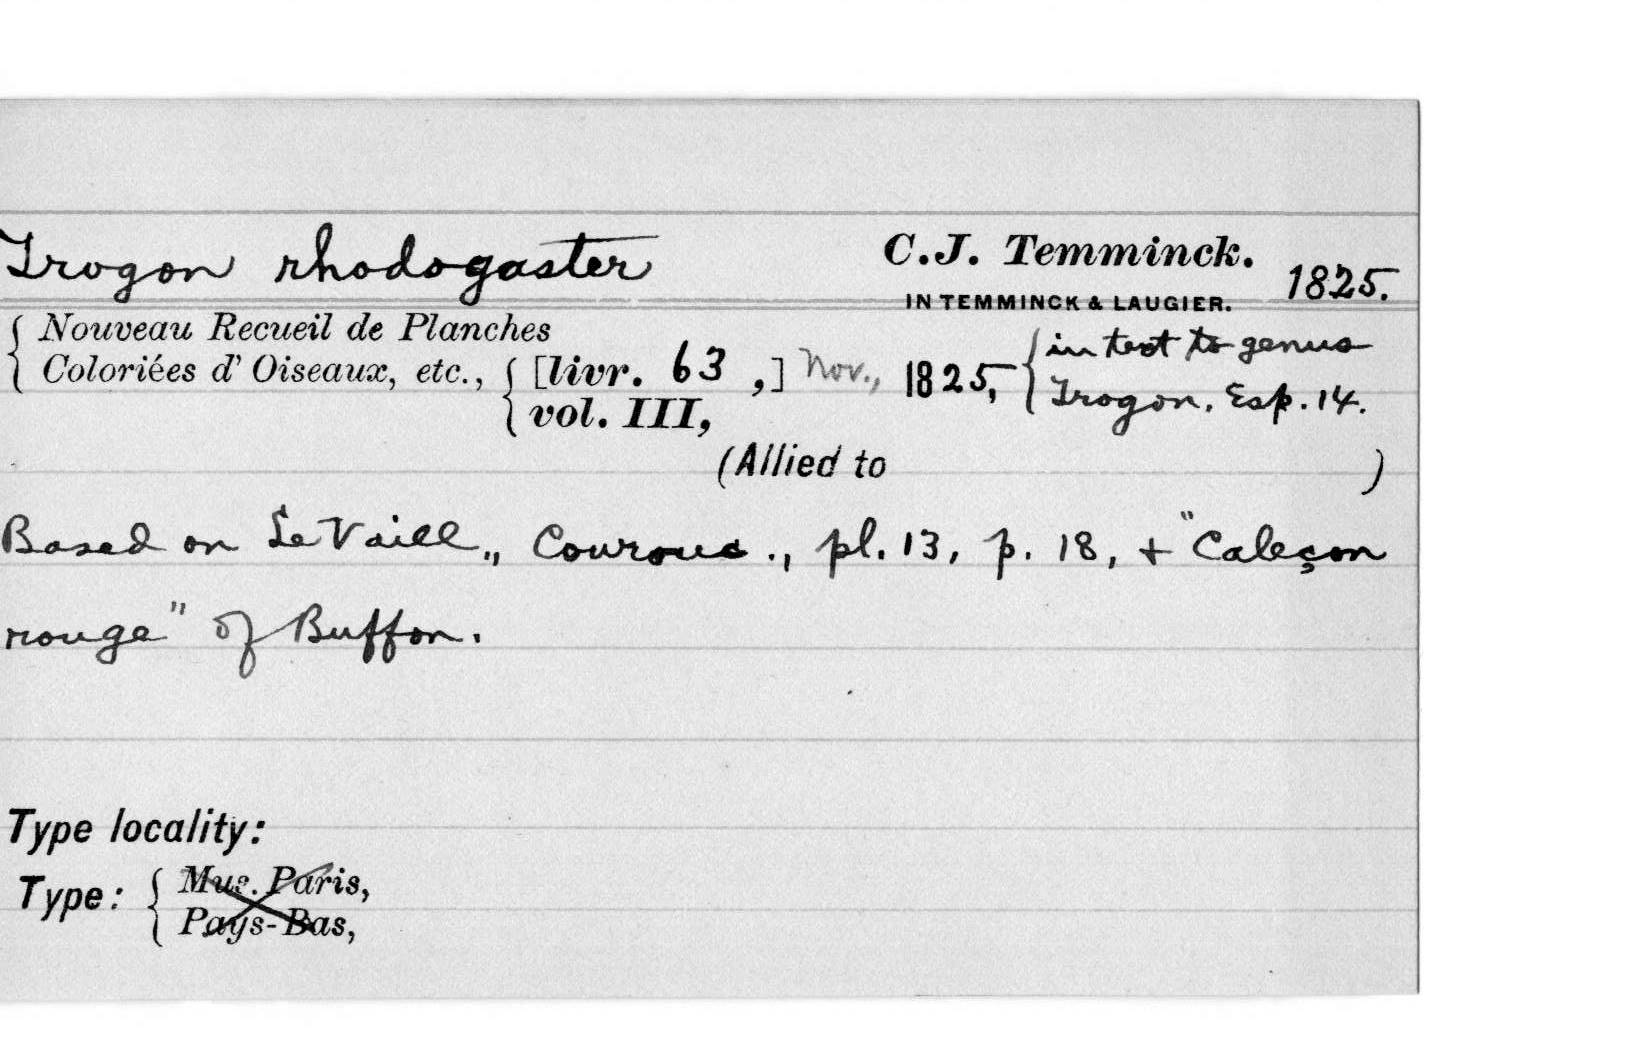 Trogon rhodogaster C.J. Temminck. 1825.
IN TEMMINCK & LAUGIER.
{ Nouveau Recueil de Planches
Coloriées d' Oiseaux, etc., { [livr. 63 ,] Nov., 1825, { in text to genus
vol. III, Trogon. Esp. 14.
(Allied to )
Based on Le Vaill., Courouc., pl. 13, p. 18, + "Caleçon
rouge" of Buffon.
Type locality:
Type: { Mus. Paris,
Pays-Bas,